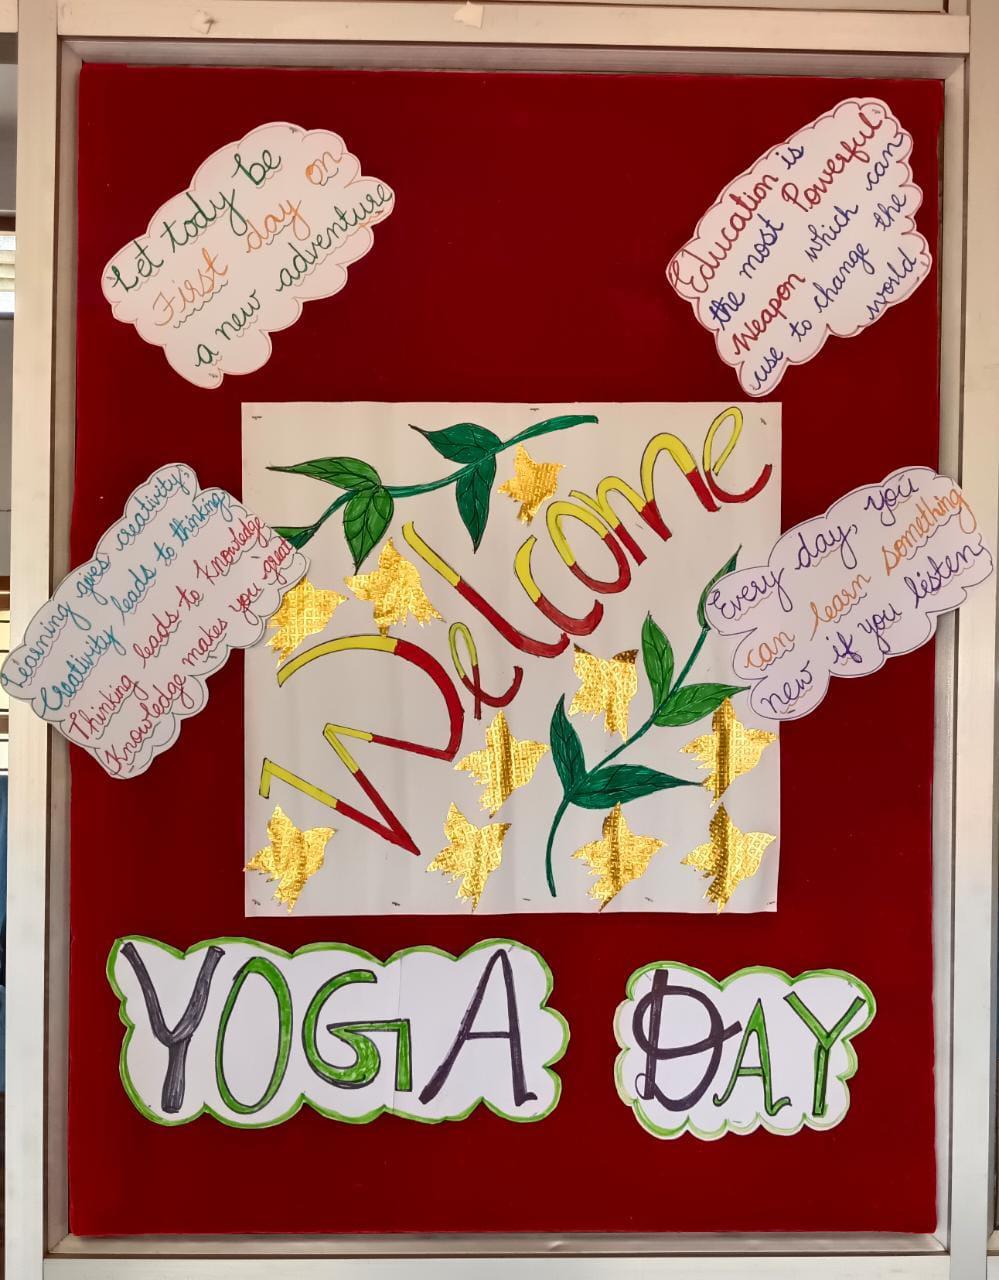 Let tody be
First day on
a new adventure
Education is
the most Powerful
Weapon which can
use to change the
world
Learning gives creativity,
Creativity leads to thinking
Thinking leads to Knowledge
Knowledge makes you great
Welcome
Every day, you
can learn something
new if you listen
YOGA DAY